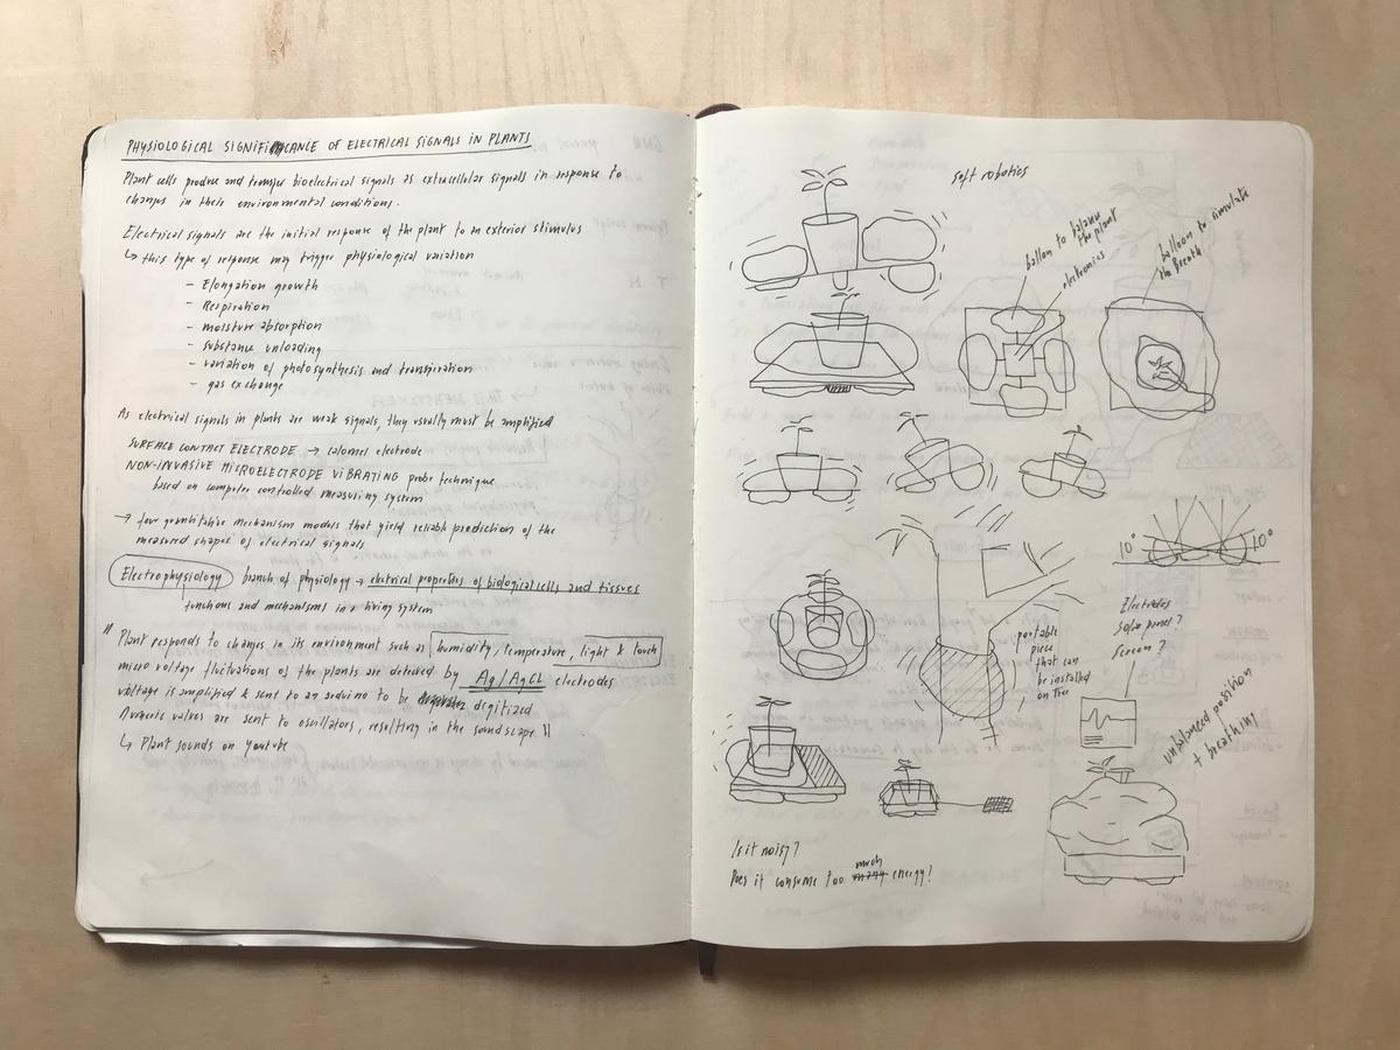 PHYSIOLOGICAL SIGNIFICANCE OF ELECTRICAL SIGNALS IN PLANTS
Plant cells produce and transfer bioelectrical signals as extracellular signals in response to
changes in their environmental conditions.
Electrical signals are the initial response of the plant to an exterior stimulus
↳ this type of response may trigger physiological variation
- Elongation growth
- Respiration
- moisture absorption
- substance unloading
- variation of photosynthesis and transpiration
- gas exchange
As electrical signals in plants are weak signals, they usually must be amplified
SURFACE CONTACT ELECTRODE → calomel electrode
NON-INVASIVE MICROELECTRODE VIBRATING probe technique
based on computer controlled measuring system
→ few quantitative mechanism models that yield reliable prediction of the
measured shapes of electrical signals
Electrophysiology branch of physiology → electrical properties of biological cells and tissues
functions and mechanisms in a living system
" Plant responds to changes in its environment such as humidity, temperature, light & touch
micro voltage fluctuations of the plants are detected by Ag/AgCL electrodes
voltage is amplified & sent to an arduino to be degitized
Numeric values are sent to oscillators, resulting in the soundscape "
↳ Plant sounds on Youtube
soft robotics
ballon to balance
the plant
electronics
balloon to simulate
the Breath
10° 10°
portable
piece
that can
be installed
on Tree
Electrodes
Solar panel?
Screen?
unbalanced position
+ breathing
Is it noisy?
Does it consume too much energy?